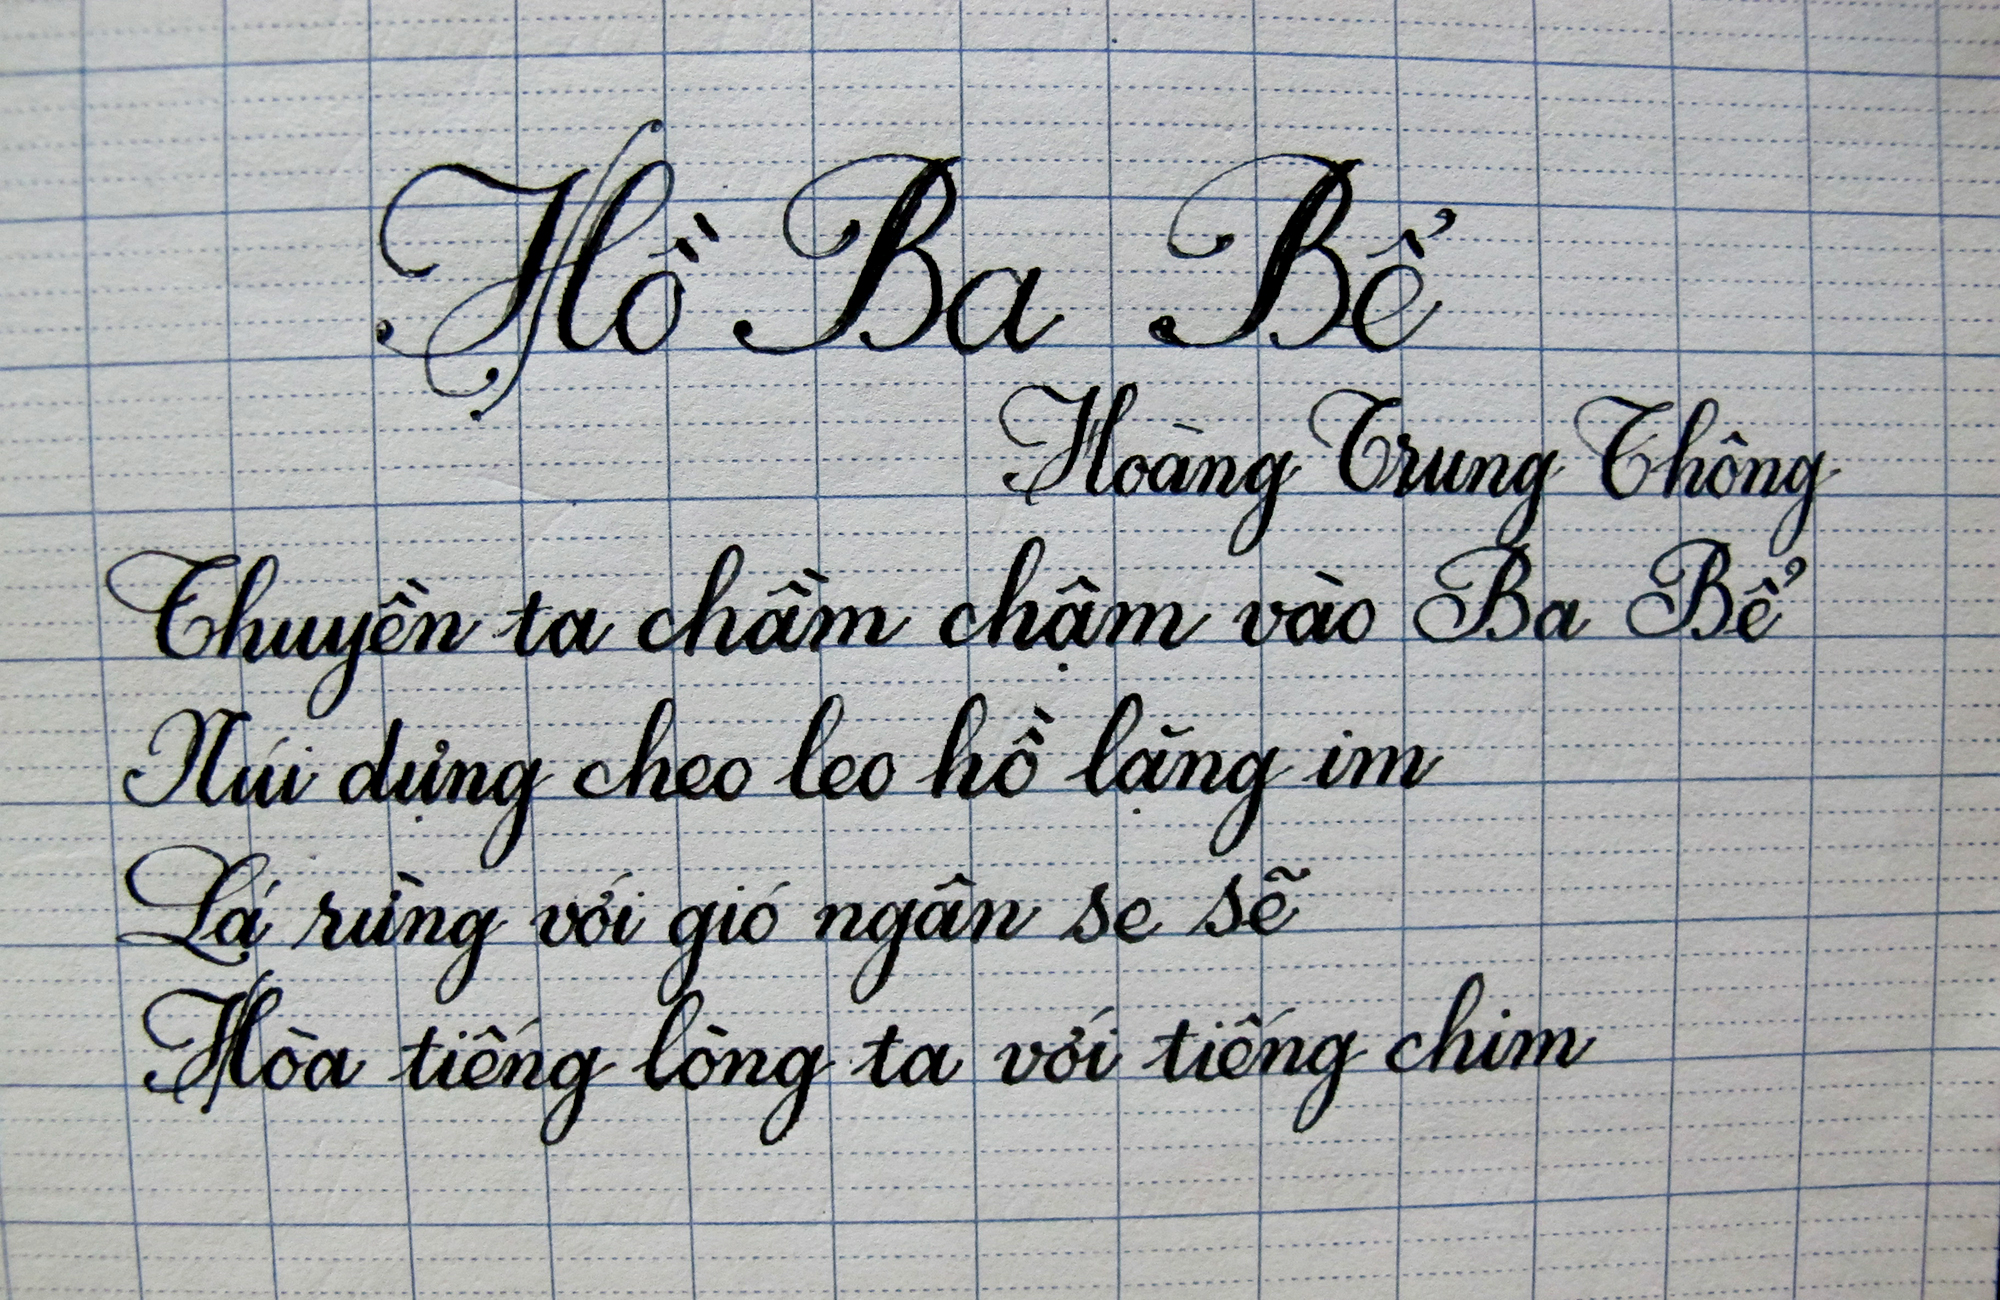 Hồ Ba Bể
Hoàng Trung Thông
Thuyền ta chầm chậm vào Ba Bể
Núi dựng cheo leo hồ lặng im
Lá rừng với gió ngân se sẽ
Hòa tiếng lòng ta với tiếng chim